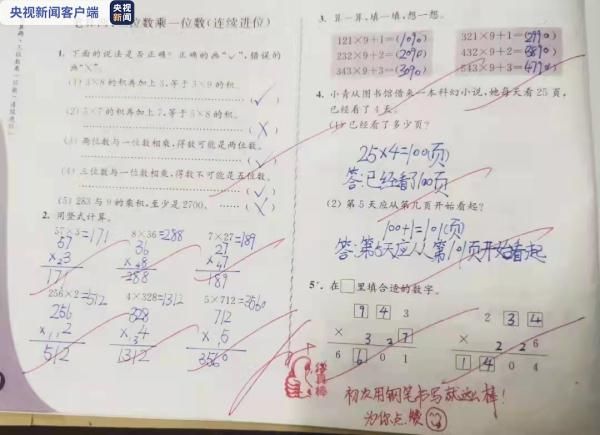 央视新闻客户端
位数乘一位数(连续进位)
1. 下面的说法是否正确？正确的画“✓”,错误的
画“×”。
(1) 3×8的积再加上3,等于3×9的积。
(✓)
(2) 5×7的积再加上7,等于5×8的积。
(×)
(3) 两位数与一位数相乘,得数可能是两位数。
(✓)
(4) 三位数与一位数相乘,得数不可能是五位数。
(✓)
(5) 283与9的乘积,至少是2700。 (×)
2. 用竖式计算。
57×3=171 8×36=288 7×27=189
57 36 27
171 288 189
256×2=512 4×328=1312 5×712=3560
256 328 712
512 1312 3560
3. 算一算,填一填,想一想。
121×9+1=(1090) 321×9+1=(2890)
232×9+2=(2090) 432×9+2=(3890)
343×9+3=(3090) 543×9+3=(4890)
4. 小青从图书馆借来一本科幻小说,她每天看25页,
已经看了4天。
(1) 已经看了多少页?
25×4=100(页)
答:已经看了100页
(2) 第5天应从第几页开始看起?
100+1=101(页)
答:第5天应从第101页开始看起
5. 在□里填合适的数字。
9 4 3 2 3 4
× ×
6 6 0 1 1 4 0 4
很真棒
初次用钢笔书写就这么棒!
为你点赞